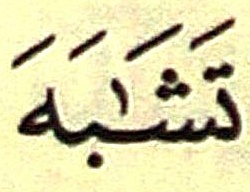 تَشَٰبَهَ